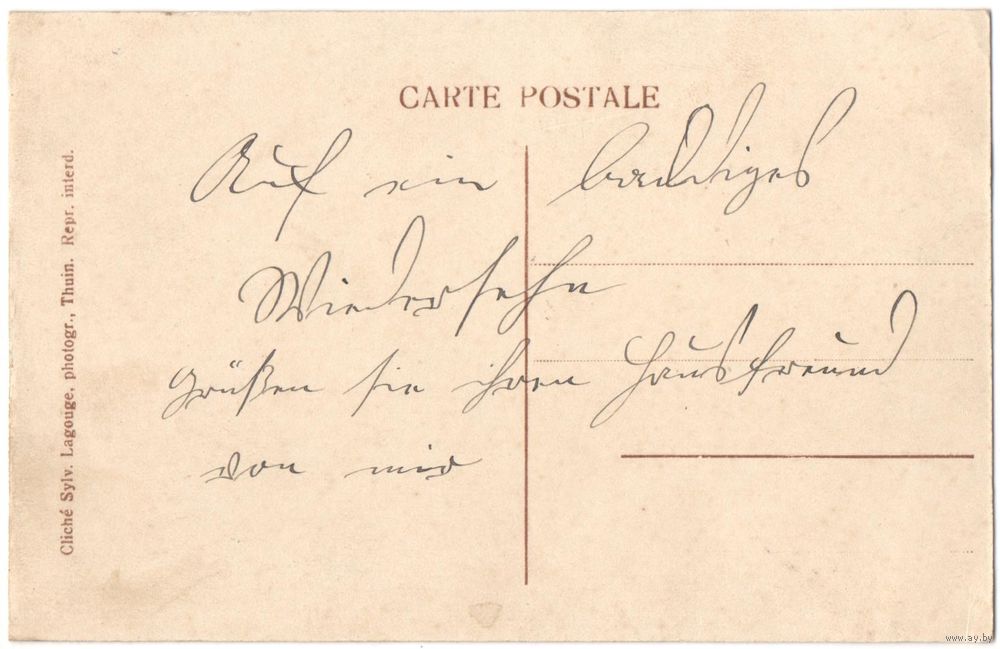 CARTE POSTALE
Auf ein baldiges
Wiedersehn
Grüßen sie ihren Hausfreund
von mir
Cliché Sylv. Lagouge, photogr., Thuin. Repr. interd.
www.ay.by